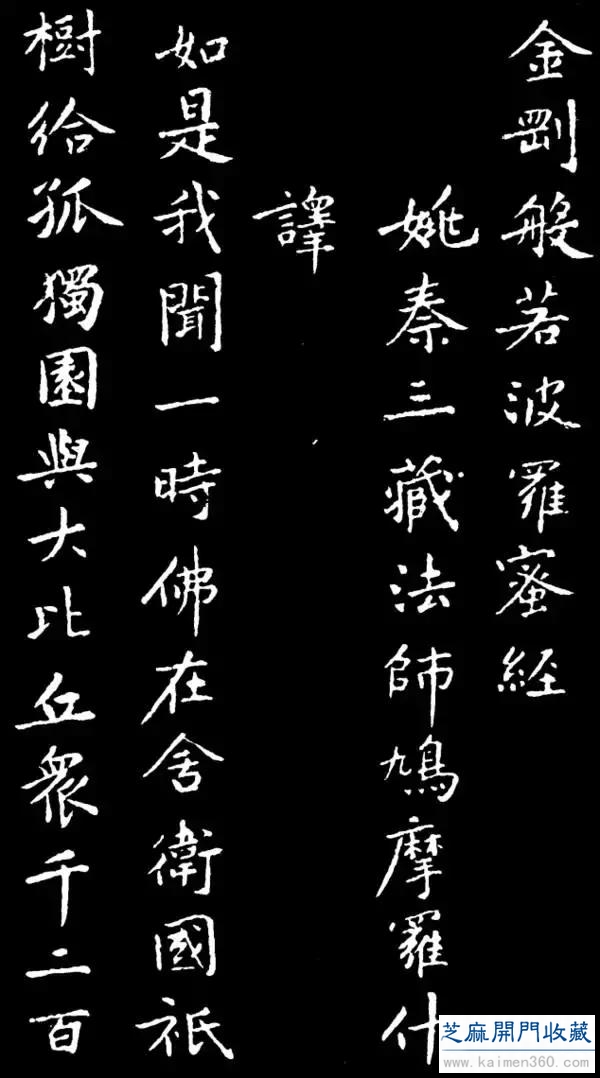 金剛般若波羅蜜經
姚秦三藏法師鳩摩羅什
譯
如是我聞一時佛在舍衛國祇
樹給孤獨園與大比丘眾千二百
芝麻開門收藏
www.kaimen360.com